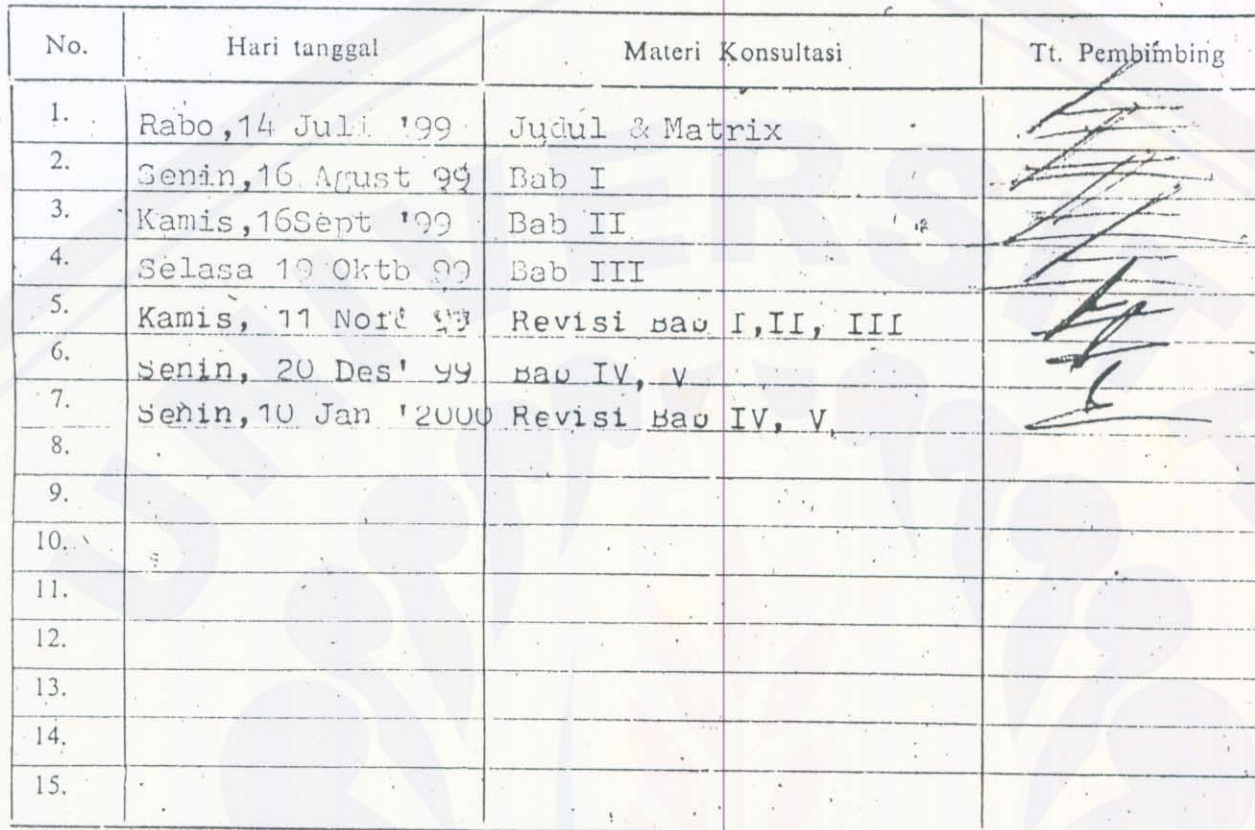 No. Hari tanggal Materi Konsultasi Tt. Pembimbing
1. Rabo,14 Juli '99 Judul & Matrix
2. Senin,16 Agust 99 Bab I
3. Kamis,16Sept '99 Bab II
4. Selasa 19 Oktb 99 Bab III
5. Kamis, 11 99 Revisi Bab I,II, III
6. Senin, 20 Des' 99 Bab IV, V
7. Senin,10 Jan '2000 Revisi Bab IV, V
8.
9.
10.
11.
12.
13.
14.
15.
UNIVERSITA